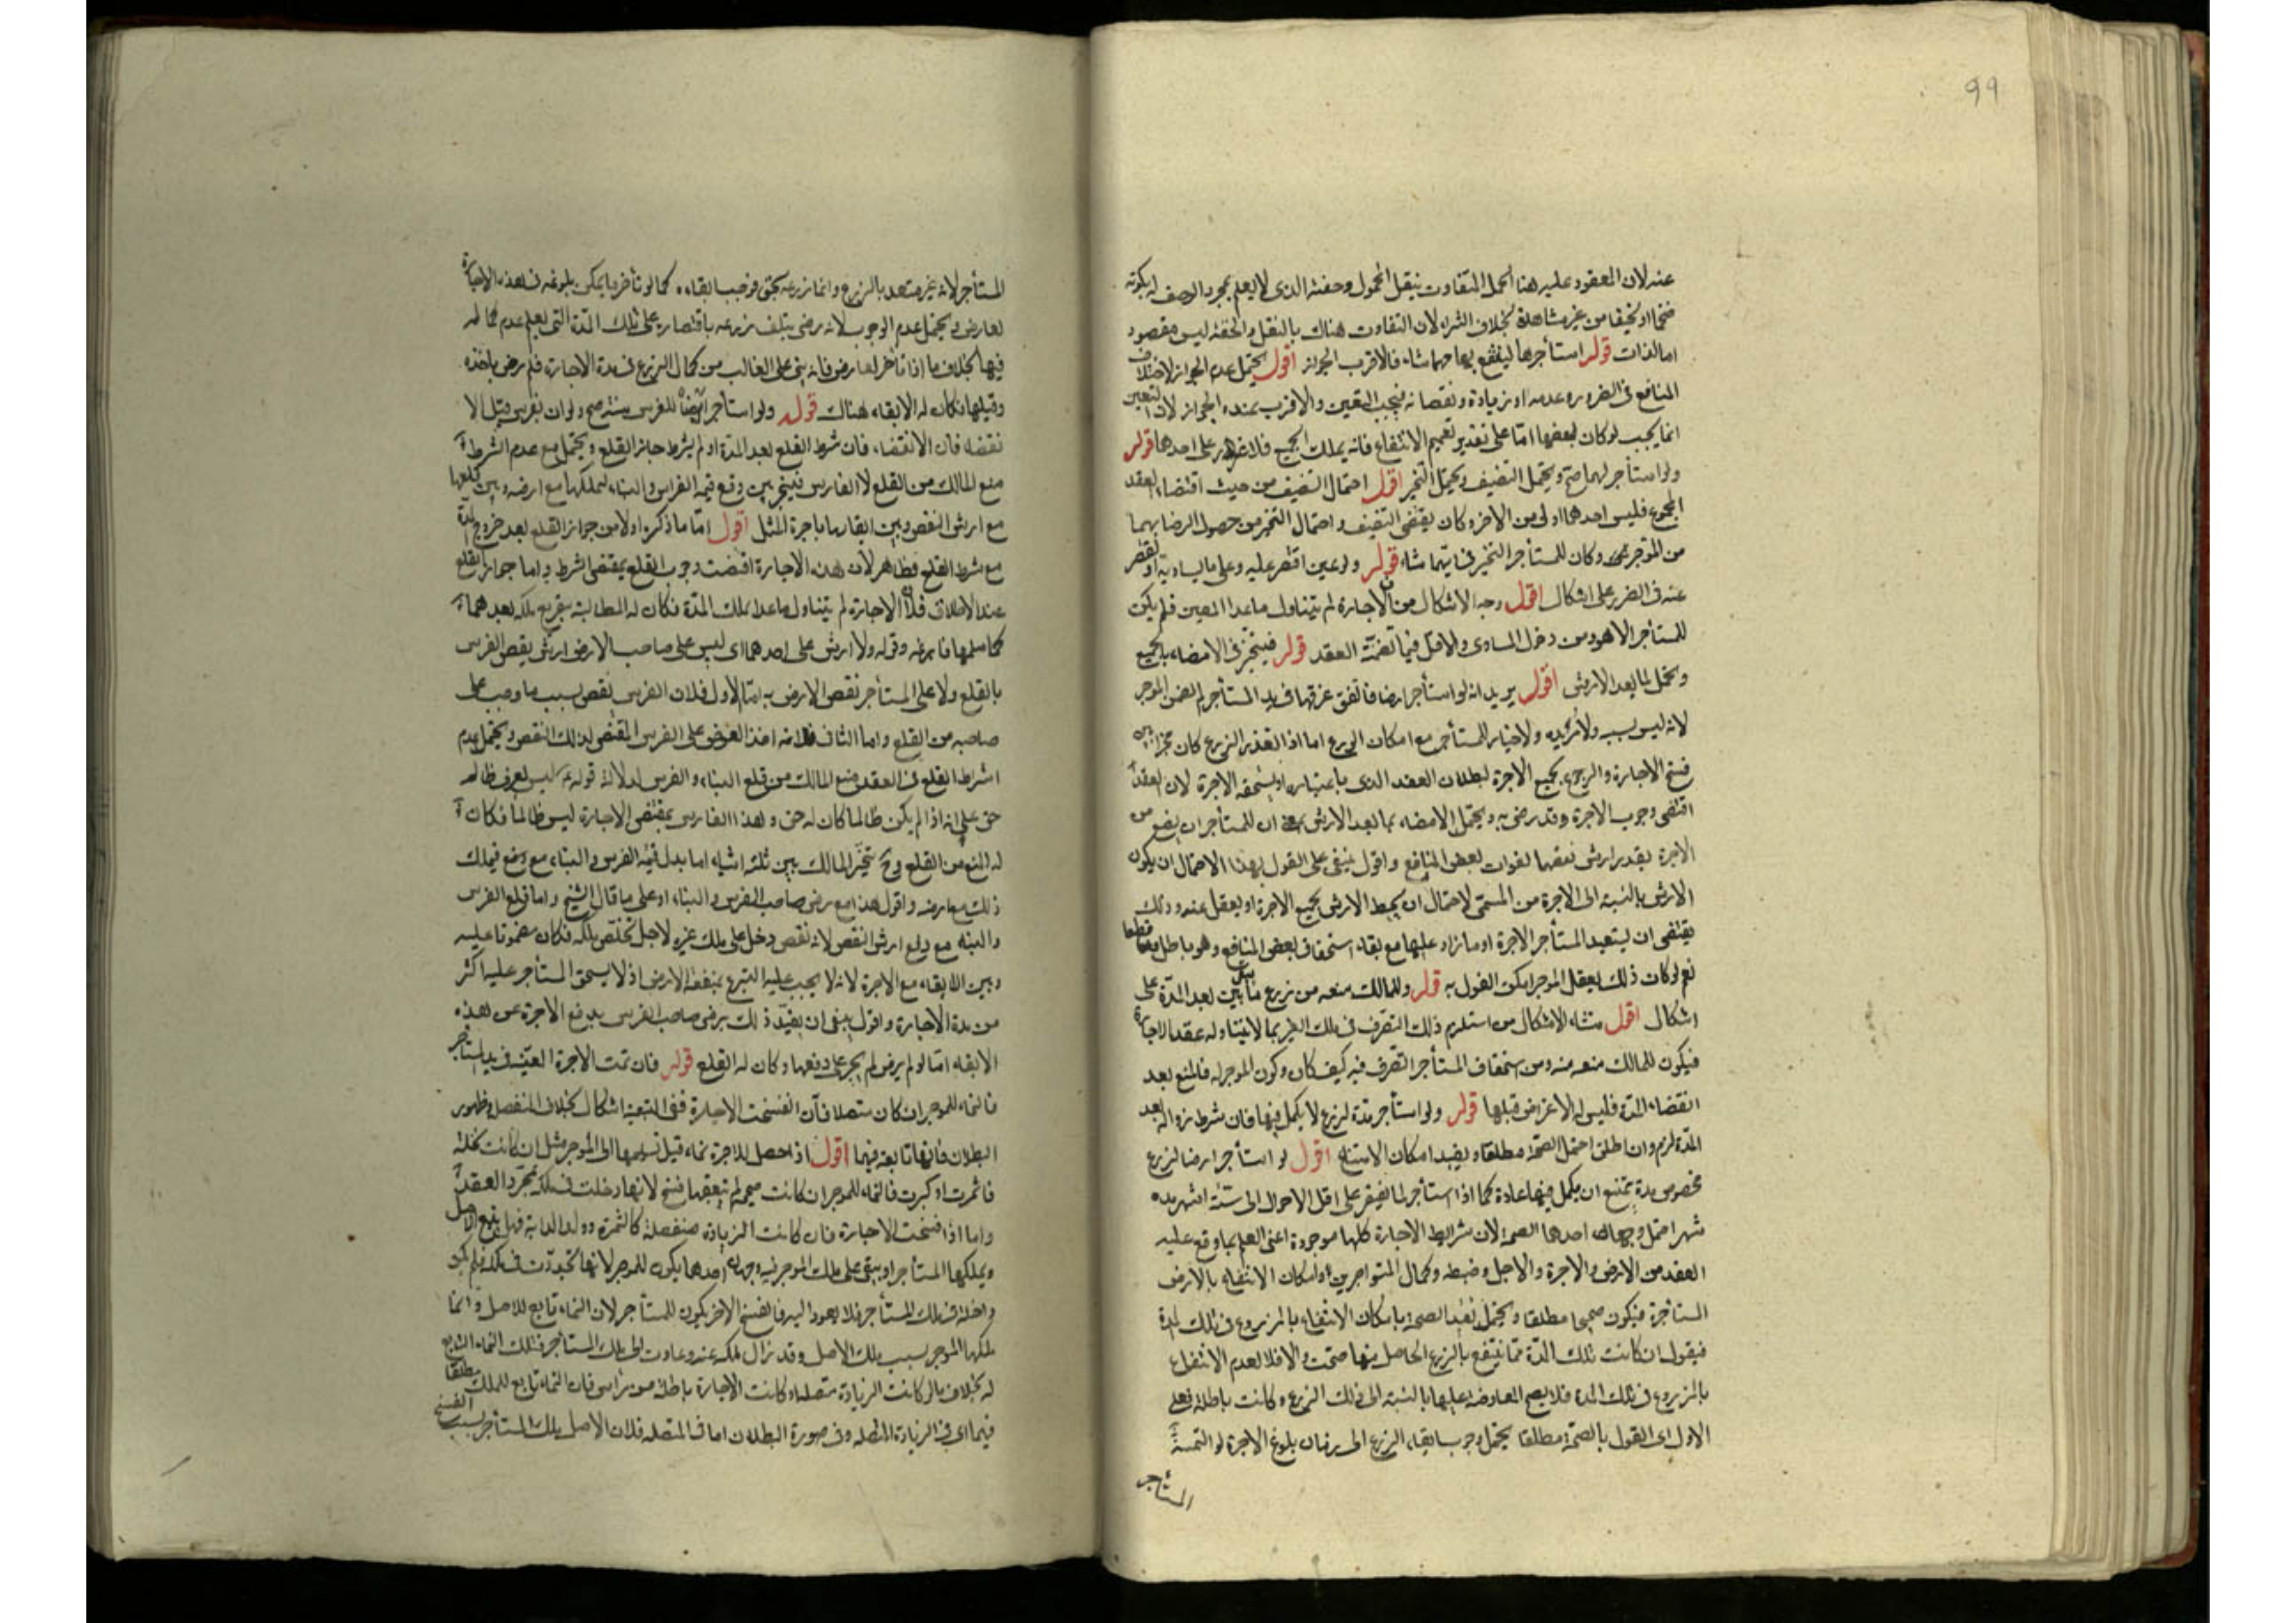 99
عنه لان المعقود عليه هنا الحمل المتفاوت بثقل المحمول وخفته الذى لا يعلم بمجرد الوصف له بكونه
ضخما او نحيفا من غير مشاهدة بخلاف الشراء لان التفاوت هناك بالثقل والخفة ليس مقصود
اما لذات قوله استأجرها لينتفع بها مهما شاء فالاقرب الجواز اقول يحتمل عدم الجواز لاختلاف
المنافع فى الضرورة وعدمه او زيادة ونقصانه فيجب التعيين والاقرب عنده الجواز لان التعيين
انما يجب لو كان لبعضها اما على تقدير تعميم الانتفاع فانه يملك الجميع فلا غرر على احدهما قوله
ولو استأجر لهما صح ويحتمل التنصيف ويحتمل التخير اقول احتمال التنصيف من حيث اقتضاء العقد
المجموع فليس احدهما اولى من الاخر وكان يقتضى التنصيف واحتمال التخير من حصول الرضا بهما
من الموجر وكان للمستأجر التخير فى ايتهما شاء قوله ولو عين اقتصر عليه وعلى ما يساويه او يقصر
عنه فى الضرر على اشكال اقول وجه الاشكال من ان الاجارة لم يتناول ما عدا المعين فلم يكن
للمستأجر الا هو ومن دخول المساوى والاقل فيما تضمنه العقد قوله فيتخير فى الامضاء بالجميع
ويحتمل لما بعد الارش اقول يريد انه لو استأجر ارضا فاتفق غرقها فى يد المستأجر لم يضمن الموجر
لانه ليس بسبب ولا خيار للمستأجر مع امكان الزرع اما اذا تعذر الزرع كان مخيرا بين
فسخ الاجارة والرجوع بجميع الاجرة لبطلان العقد الذى باعتباره يستحق الاجرة لان العقد
اقتضى وجوب الاجرة وقد رضى به ويحتمل الامضاء بما بعد الارش ان للمستأجر ان يضع من
الاجرة بقدر ارش نقصها لفوات بعض المنافع واقول ينبغى على القول بهذا الاحتمال ان يكون
الارش بالنسبة الى الاجرة من المسمى لاحتمال ان يحيط الارش بجميع الاجرة او يفضل عنه وذلك
يقتضى ان يستعيد المستأجر الاجرة او ما زاد عليها مع بقاء استحقاق بعض المنافع وهو باطل قطعا
نعم لو كان ذلك بفعل الموجر امكن القول به قوله وللمالك منعه من زرع ما يبقى بعد المدة على
اشكال اقول منشاء الاشكال من استلزم ذلك التصرف فى ملك الغير بما لا يتناوله عقد الاجارة
فيكون للمالك منعه منه ومن استحقاق المستأجر التصرف فيه كيف كان وكون الموجر له المنع بعد
انقضاء المدة فليس له الاعتراض قبلها قوله ولو استأجر مدة لزرع لا يكمل فيها فان شرط نزواله بعد
المدة لزم وان اطلق احتمل الصحة مطلقا وبقيد امكان الانتفاع اقول لو استأجر ارضا لزرع
مخصوص مدة يمتنع ان يكمل فيها عادة كما اذا استأجر لما يفتقر على اقل الاحوال الى ستة اشهر مدة
شهر احتمل وجهان احدهما الصحة لان شرايط الاجارة كلها موجودة اعنى العلم بما وقع عليه
العقد من الارض والاجرة والاجل وضبطه وكمال المتواجرين وامكان الانتفاع بالارض
المستأجرة فيكون صحيحا مطلقا ويحتمل تقييد الصحة بامكان الانتفاع بالمزروع فى تلك المدة
فيقول ان كانت تلك المدة مما ينتفع بالزرع الحاصل فيها صحت والا فلا لعدم الانتفاع
بالمزروع فى تلك المدة فلا يصح المعاوضة عليها بالنسبة الى ذلك الزرع وكانت باطلة فعلى
الاول اى القول بالصحة مطلقا يحتمل وجوب ابقاء الزرع الى زمان بلوغ الاجرة لو التمسه
المستأجر
المستأجر لانه غير متعد بالزرع وانما زرعه بحق فوجب ابقاءه كما لو تأخر ما يمكن بلوغه فى هذه الاجارة
لعارض ويحتمل عدم الوجوب لانه رضى بتلف زرعه باقتصاره على تلك المدة التى يعلم عدم كماله
فيها بخلاف ما اذا تأخر لعارض فانه بنى على الغالب من كمال الزرع فى مدة الاجارة فلم يرض باخذه
وقبلها فكان له الابقاء هناك قوله ولو استأجر ارضا للغرس سنة صح وله ان يغرس قبل الا
نقضاء فان الانقضاء فان شرط القلع بعد المدة او لم يشرط جاز القلع ويحتمل مع عدم الشرط
منع المالك من القلع لا الغارس فيتخير بين دفع قيمة الغراس والبناء ليملكها مع ارضه وبين قلعها
مع ارش النقص وبين ابقائها باجرة المثل اقول اما ما ذكره اولا من جواز القلع بعد خروج المدة
مع شرط القلع فظاهر لان هذه الاجارة اقتضت وجوب القلع بمقتضى الشرط واما جواز القلع
عند الاطلاق فلان الاجارة لم يتناول ما عدا تلك المدة فكان له المطالبة بتفريع ملكه بعدها
كما سلمها فارغه وقوله ولا ارش على احدهما اى ليس على صاحب الارض ارش نقص الغرس
بالقلع ولا على المستأجر نقص الارض به اما الاول فلان الغرس نقص بسبب ما وجب على
صاحبه من القلع واما الثانى فلانه اخذ العوض على الغرس المقتضى لذلك النقص ويحتمل عدم
اشراط القلع فى العقد منع المالك من قلع البناء والغرس لدلالة قوله ع ليس لعرق ظالم
حق على انه اذا لم يكن ظالما كان له حق وهذا الغارس بمقتضى الاجارة ليس ظالما فكان
له المنع من القلع وح يتخير المالك بين ثلثة اشياء اما بدل قيمة الغرس والبناء مع دفع فيملك
ذلك مع ارضه واقول هذا مع رضى صاحب الغرس والبناء او على ما قال الشيخ واما قلع الغرس
والبناء مع دفع ارش النقص لانه نقص دخل على ملك غيره لاجل تخليص ملكه فكان مضمونا عليه
وبين الابقاء مع الاجرة لانه لا يجب عليه التبرع بمنفعة الارض اذ لا يستحق المستأجر عليه اكثر
من مدة الاجارة واقول ينبغى ان يقيد ذلك برضى صاحب الغرس بدفع الاجرة عن هذه
الابقاء اما لو لم يرض لم يجبر على دفعها وكان له القلع قوله فان نمت الاجرة المعينة فى يد المستأجر
فالنماء للموجر ان كان متصلا فان انفسخت الاجارة ففى التبعية اشكال بخلاف المنفصل وظهور
البطلان فانها تابعة فيهما اقول اذا حصل للاجرة نماء قبل تسليمها الى الموجر مثل ان كانت نخلة
فاثمرت او كبرت فالنماء للموجر ان كانت صحيحة لم يتعقبها فسخ لانها دخلت فى ملكه بمجرد العقد
واما اذا فسخت الاجارة فان كانت الزيادة منفصلة كالثمرة وولد الدابة فهل يتبع الاصل
ويملكها المستأجر او يبقى على ملك الموجر فيه وجهان احدهما يكون للموجر لانها تجددت فى ملكه فلم يكن
داخلة فى ملك المستأجر فلا يعود اليه فالفسخ الاخر يكون للمستأجر لان النماء تابع للاصل وانما
ملكها الموجر بسبب ملك الاصل وقد زال ملكه عنه وعادت الى ملك المستأجر فذلك النماء التابع
له بخلاف ما لو كانت الزيادة متصلة او كانت الاجارة باطلة من راس فان النماء تابع للملك مطلقا
فيهما اى فى الزيادة المتصلة وفى صورة البطلان اما فى المتصلة فلان الاصل ملك المستأجر بسبب الفسخ